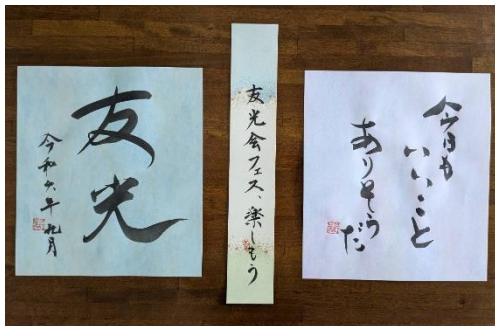 友光
令和六年 九月
友光会フェス、楽しもう
今日も
いいこと
ありそうだ